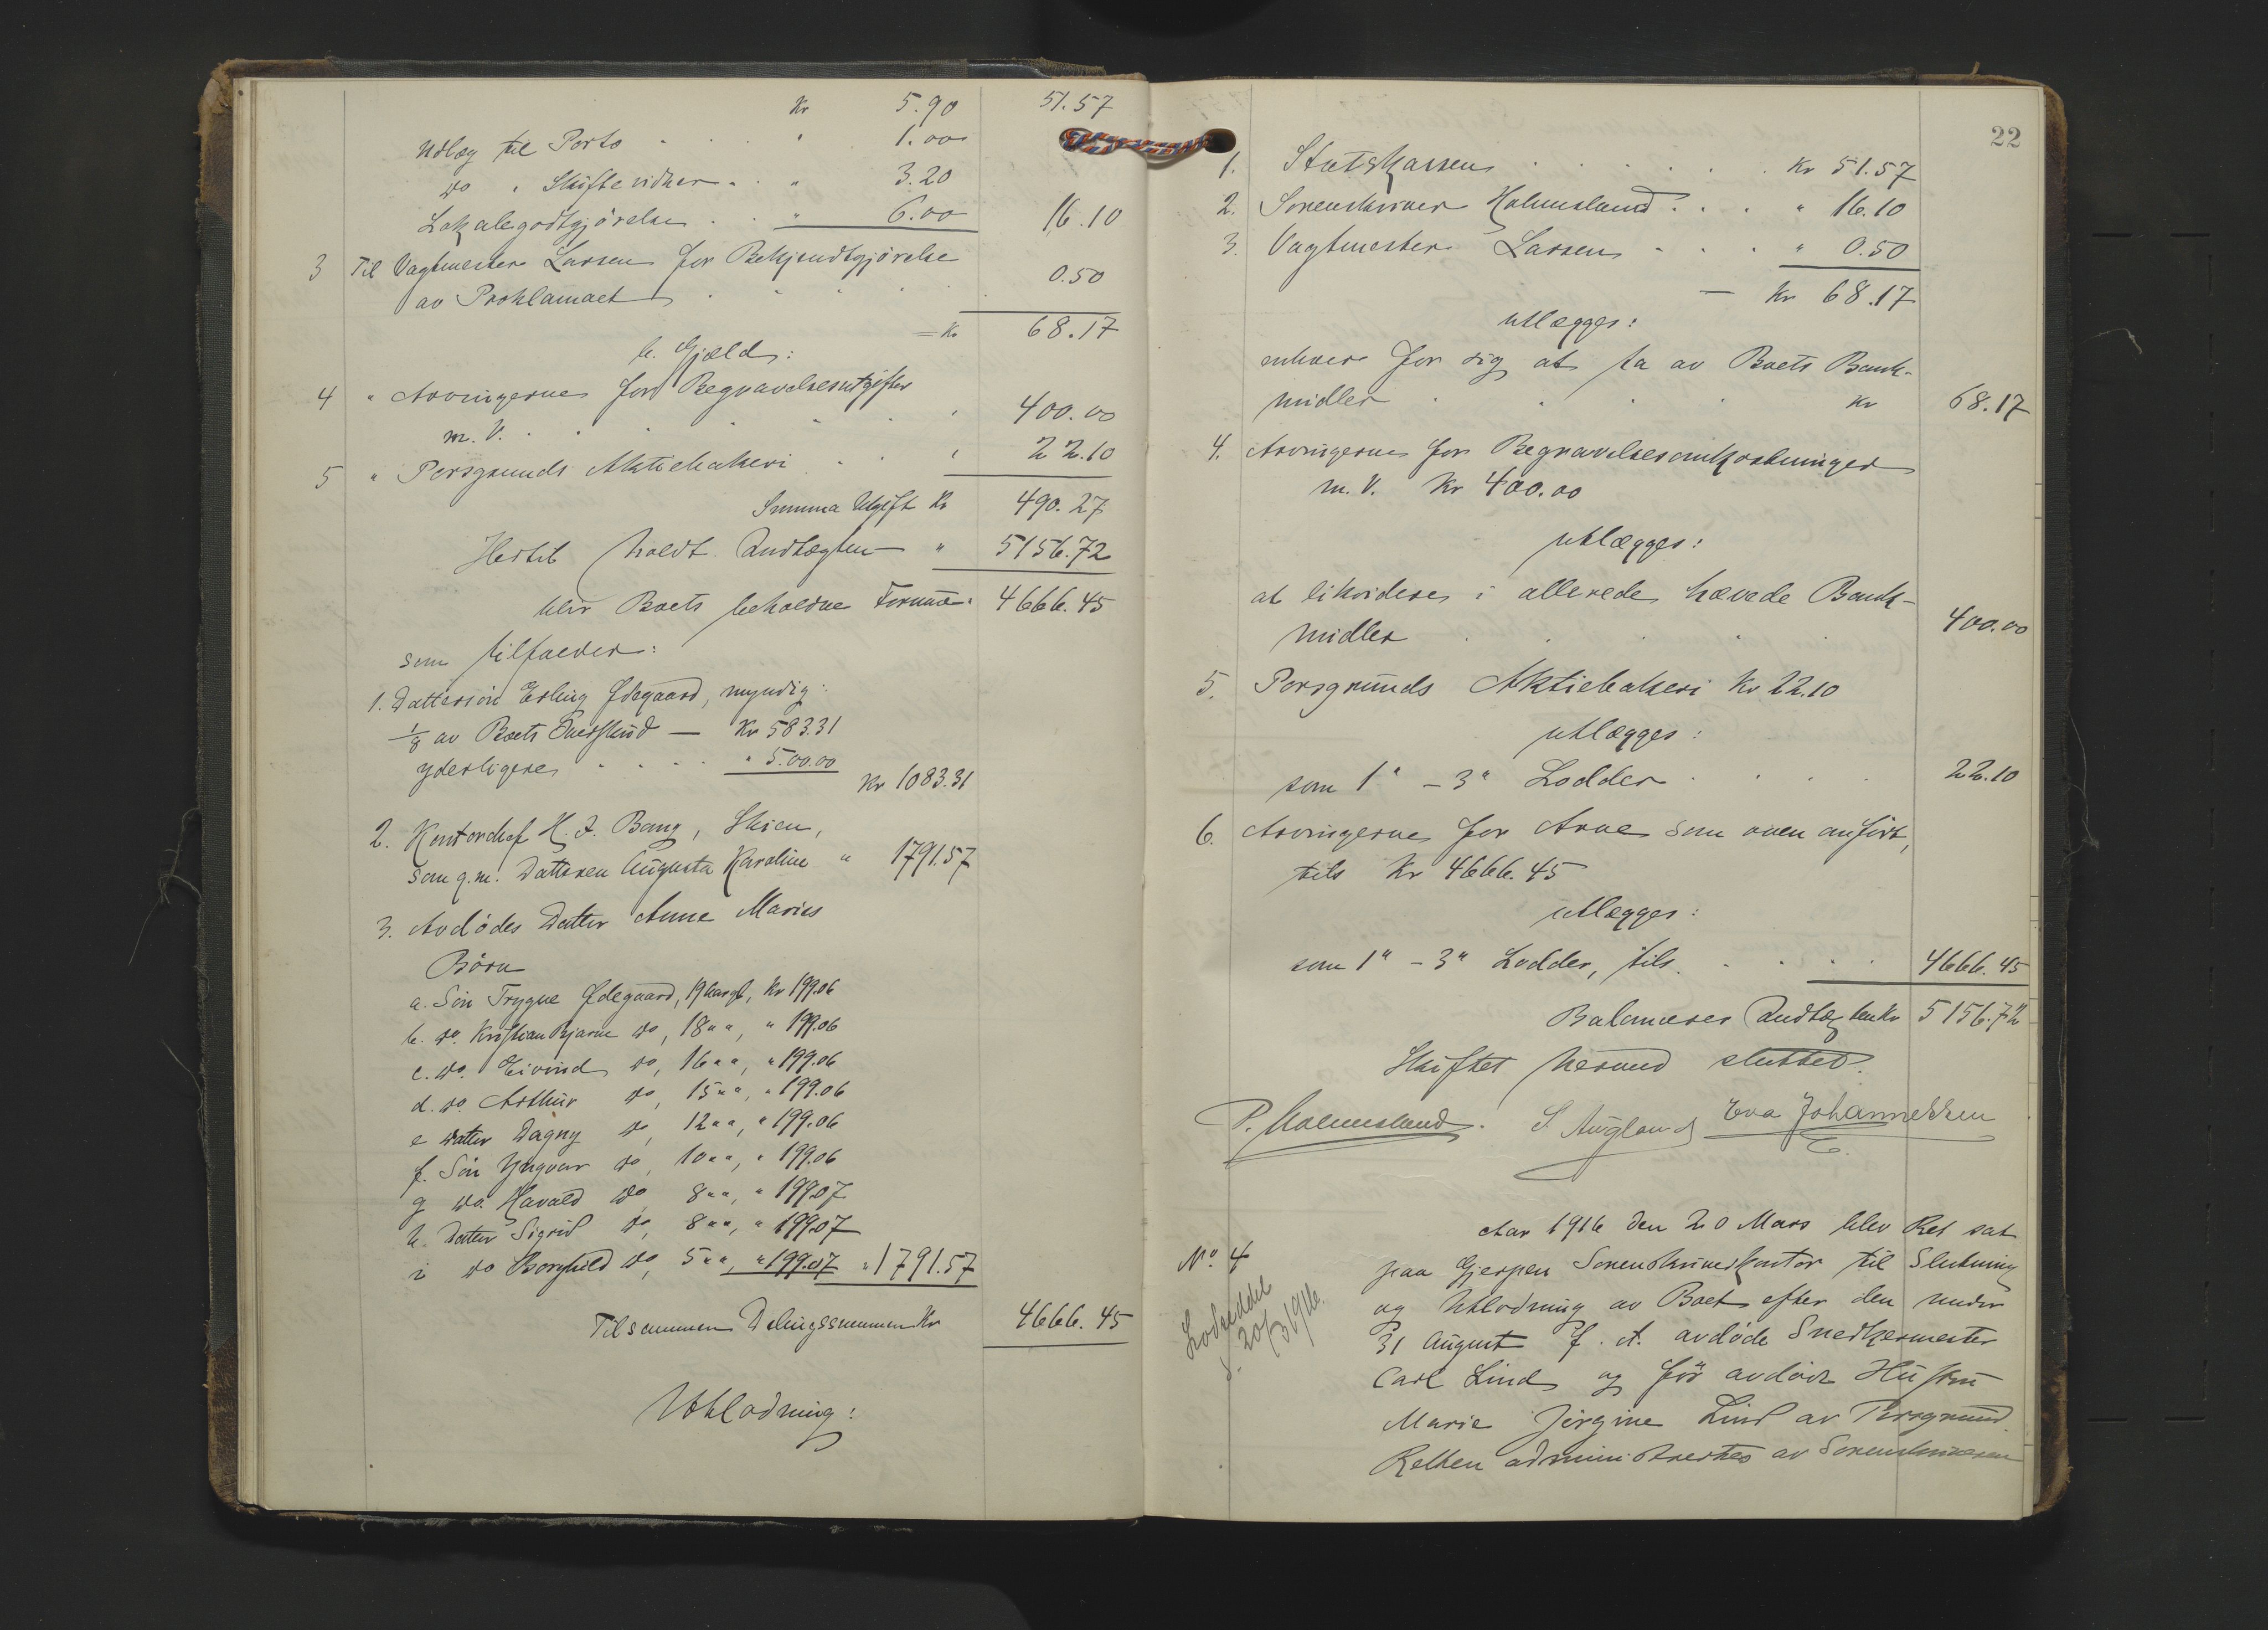 Kr 5.90 51.57
Utlæg til Porto " 1.00
do " Skiftevidner " 3.20
Lokalegodtgjörelse " 6.00 16.10
3 Til Vagtmester Larsen for Bekjendtgjörelse
av Proklamaet 0.50
= Kr 68.17
b. Gjæld:
4 " Arvingerne for Begravelsesutgifter
m. V. " 400.00
5 " Porsgrunds Aktiebakeri " 22.10
Summa Utgift Kr 490.27
Hertil holdt Indtægten " 5156.72
blir Boets beholdne Formue " 4666.45
som tilfalder:
1. Dattersön Erling Ødegaard, myndig:
1/8 av Boets Overskud — Kr 583.31
yderligere " 500.00
Kr 1083.31
2. Kontorchef H. J. Bang, Skien,
som g.m. Datteren Augusta Karoline " 1791.57
3. Avdödes Datter Anne Maries
Börn
a. Sön Trygve Ødegaard, 19 aar gl, Kr 199.06
b. do. Kristian Bjarne do, 18 " ", " 199.06
c. do. Eivind do, 16 " ", " 199.06
d. do. Arthur do, 15 " ", " 199.06
e Datter Dagny do, 12 " ", " 199.06
f. Sön Yngvar do, 10 " ", " 199.06
g do. Havald do, 8 " ", " 199.07
h. Datter Sigrid do, 8 " ", " 199.07
i do Borghild do, 5 " ", " 199.07 " 1791.57
Tilsammen Delingssummen Kr 4666.45
Utlodning:
22
1. Statskassen Kr 51.57
2. Sorenskriver Holmesland " 16.10
3. Vagtmester Larsen " 0.50
— Kr 68.17
utlægges:
enhver for sig at ta av Boets Bank-
midler Kr 68.17
4. Arvingerne for Begravelsesomkostninger
m. V. Kr 400.00
utlægges:
at likvidere i allerede hævede Bank-
midler 400.00
5. Porsgrunds Aktiebakeri Kr 22.10
utlægges:
som 1" - 3" Lodder 22.10
6. Arvingerne for Arve som oven anfört,
tils Kr 4666.45
utlægges:
som 1" - 3" Lodder, tils. 4666.45
Balancerer Indtægten Kr 5156.72
Skiftet herved sluttet.
P. Holmesland. S. Augland Eva Johannessen
No 4
Lodseddel
d. 20/3 1916.
Aar 1916 den 20 Mars blev Ret sat
paa Gjerpen Sorenskriverkontor til Slutning
og Utlodning av Boet efter den under
31 August f. A. avdöde Snedkermester
Carl Lind og för avdöde Hustru
Marie Jörgine Lind av Porsgrund.
Retten administrertes av Sorenskriveren